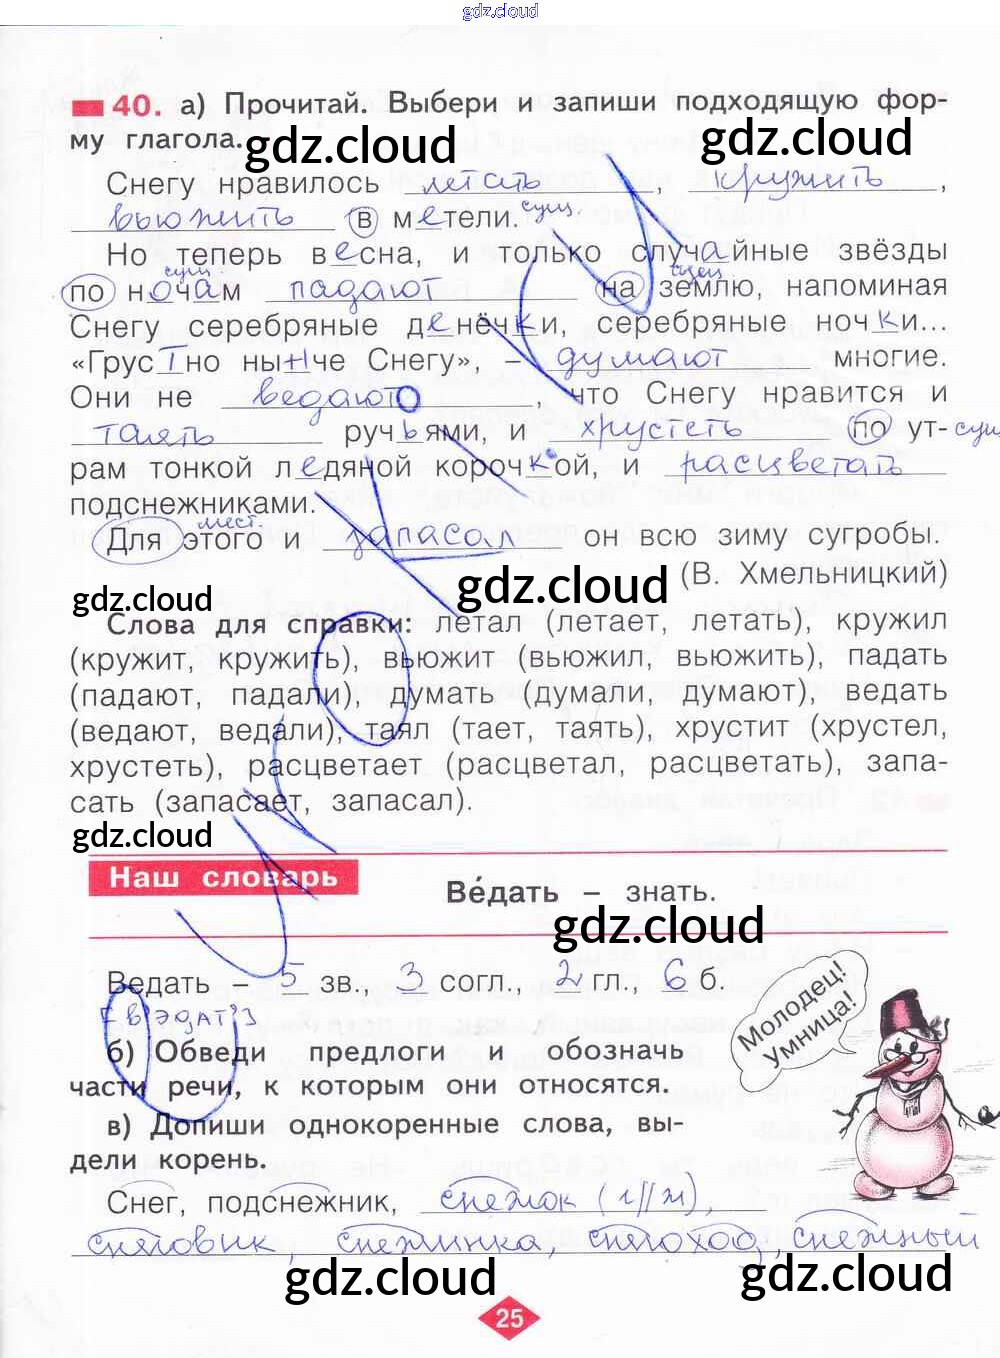 gdz.cloud
40. а) Прочитай. Выбери и запиши подходящую фор-
му глагола.
gdz.cloud gdz.cloud
Снегу нравилось летать, кружить,
вьюжить в метели. сущ
Но теперь весна, и только случайные звёзды
сущ сущ
по ночам падают на землю, напоминая
Снегу серебряные денёчки, серебряные ночки...
«Грустно нынче Снегу», – думают многие.
Они не ведают, что Снегу нравится и
таять ручьями, и хрустеть по ут- сущ
рам тонкой ледяной корочкой, и расцветать
подснежниками.
мест.
Для этого и запасал он всю зиму сугробы.
(В. Хмельницкий)
gdz.cloud gdz.cloud
Слова для справки: летал (летает, летать), кружил
(кружит, кружить), вьюжит (вьюжил, вьюжить), падать
(падают, падали), думать (думали, думают), ведать
(ведают, ведали), таял (тает, таять), хрустит (хрустел,
хрустеть), расцветает (расцветал, расцветать), запа-
сать (запасает, запасал).
gdz.cloud
Наш словарь
Ве́дать – знать.
gdz.cloud
Ведать – 5 зв., 3 согл., 2 гл., 6 б.
[в'эдат']
Молодец!
Умница!
б) Обведи предлоги и обозначь
части речи, к которым они относятся.
в) Допиши однокоренные слова, вы-
дели корень.
Снег, подснежник, снежок (г//ж),
снеговик, снежинка, снегоход, снежный
gdz.cloud gdz.cloud
25